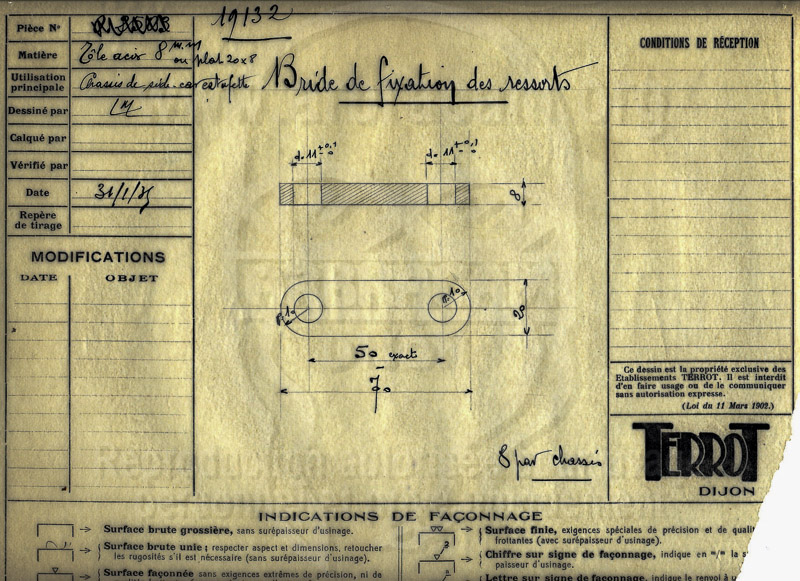 Pièce No
19132
Matière
Tôle acier 8 m.m
ou plat 20x8
Utilisation
principale
Chassis de side-car estafette
Bride de fixation des ressorts
Dessiné par
Calqué par
Vérifié par
Date
31/1/35
Repère
de tirage
MODIFICATIONS
DATE OBJET
CONDITIONS DE RÉCEPTION
d=11 +0,1 -0
d=11 +0,1 -0
8
R=10
R=10
20
50 exacts
70
8 par chassis
Ce dessin est la propriété exclusive des
Etablissements TERROT. Il est interdit
d'en faire usage ou de le communiquer
sans autorisation expresse.
(Loi du 11 Mars 1902.)
TERROT
DIJON
INDICATIONS DE FAÇONNAGE
Surface brute grossière, sans surépaisseur d'usinage.
Surface brute unie ; respecter aspect et dimensions, retoucher
les rugosités s'il est nécessaire (sans surépaisseur d'usinage).
Surface façonnée sans exigences extrêmes de précision, ni de
Surface finie, exigences spéciales de précision et de
frottantes (avec surépaisseur d'usinage).
Chiffre sur signe de façonnage, indique en "/" la
paisseur d'usinage.
Lettre sur signe de façonnage, indique le renvoi à